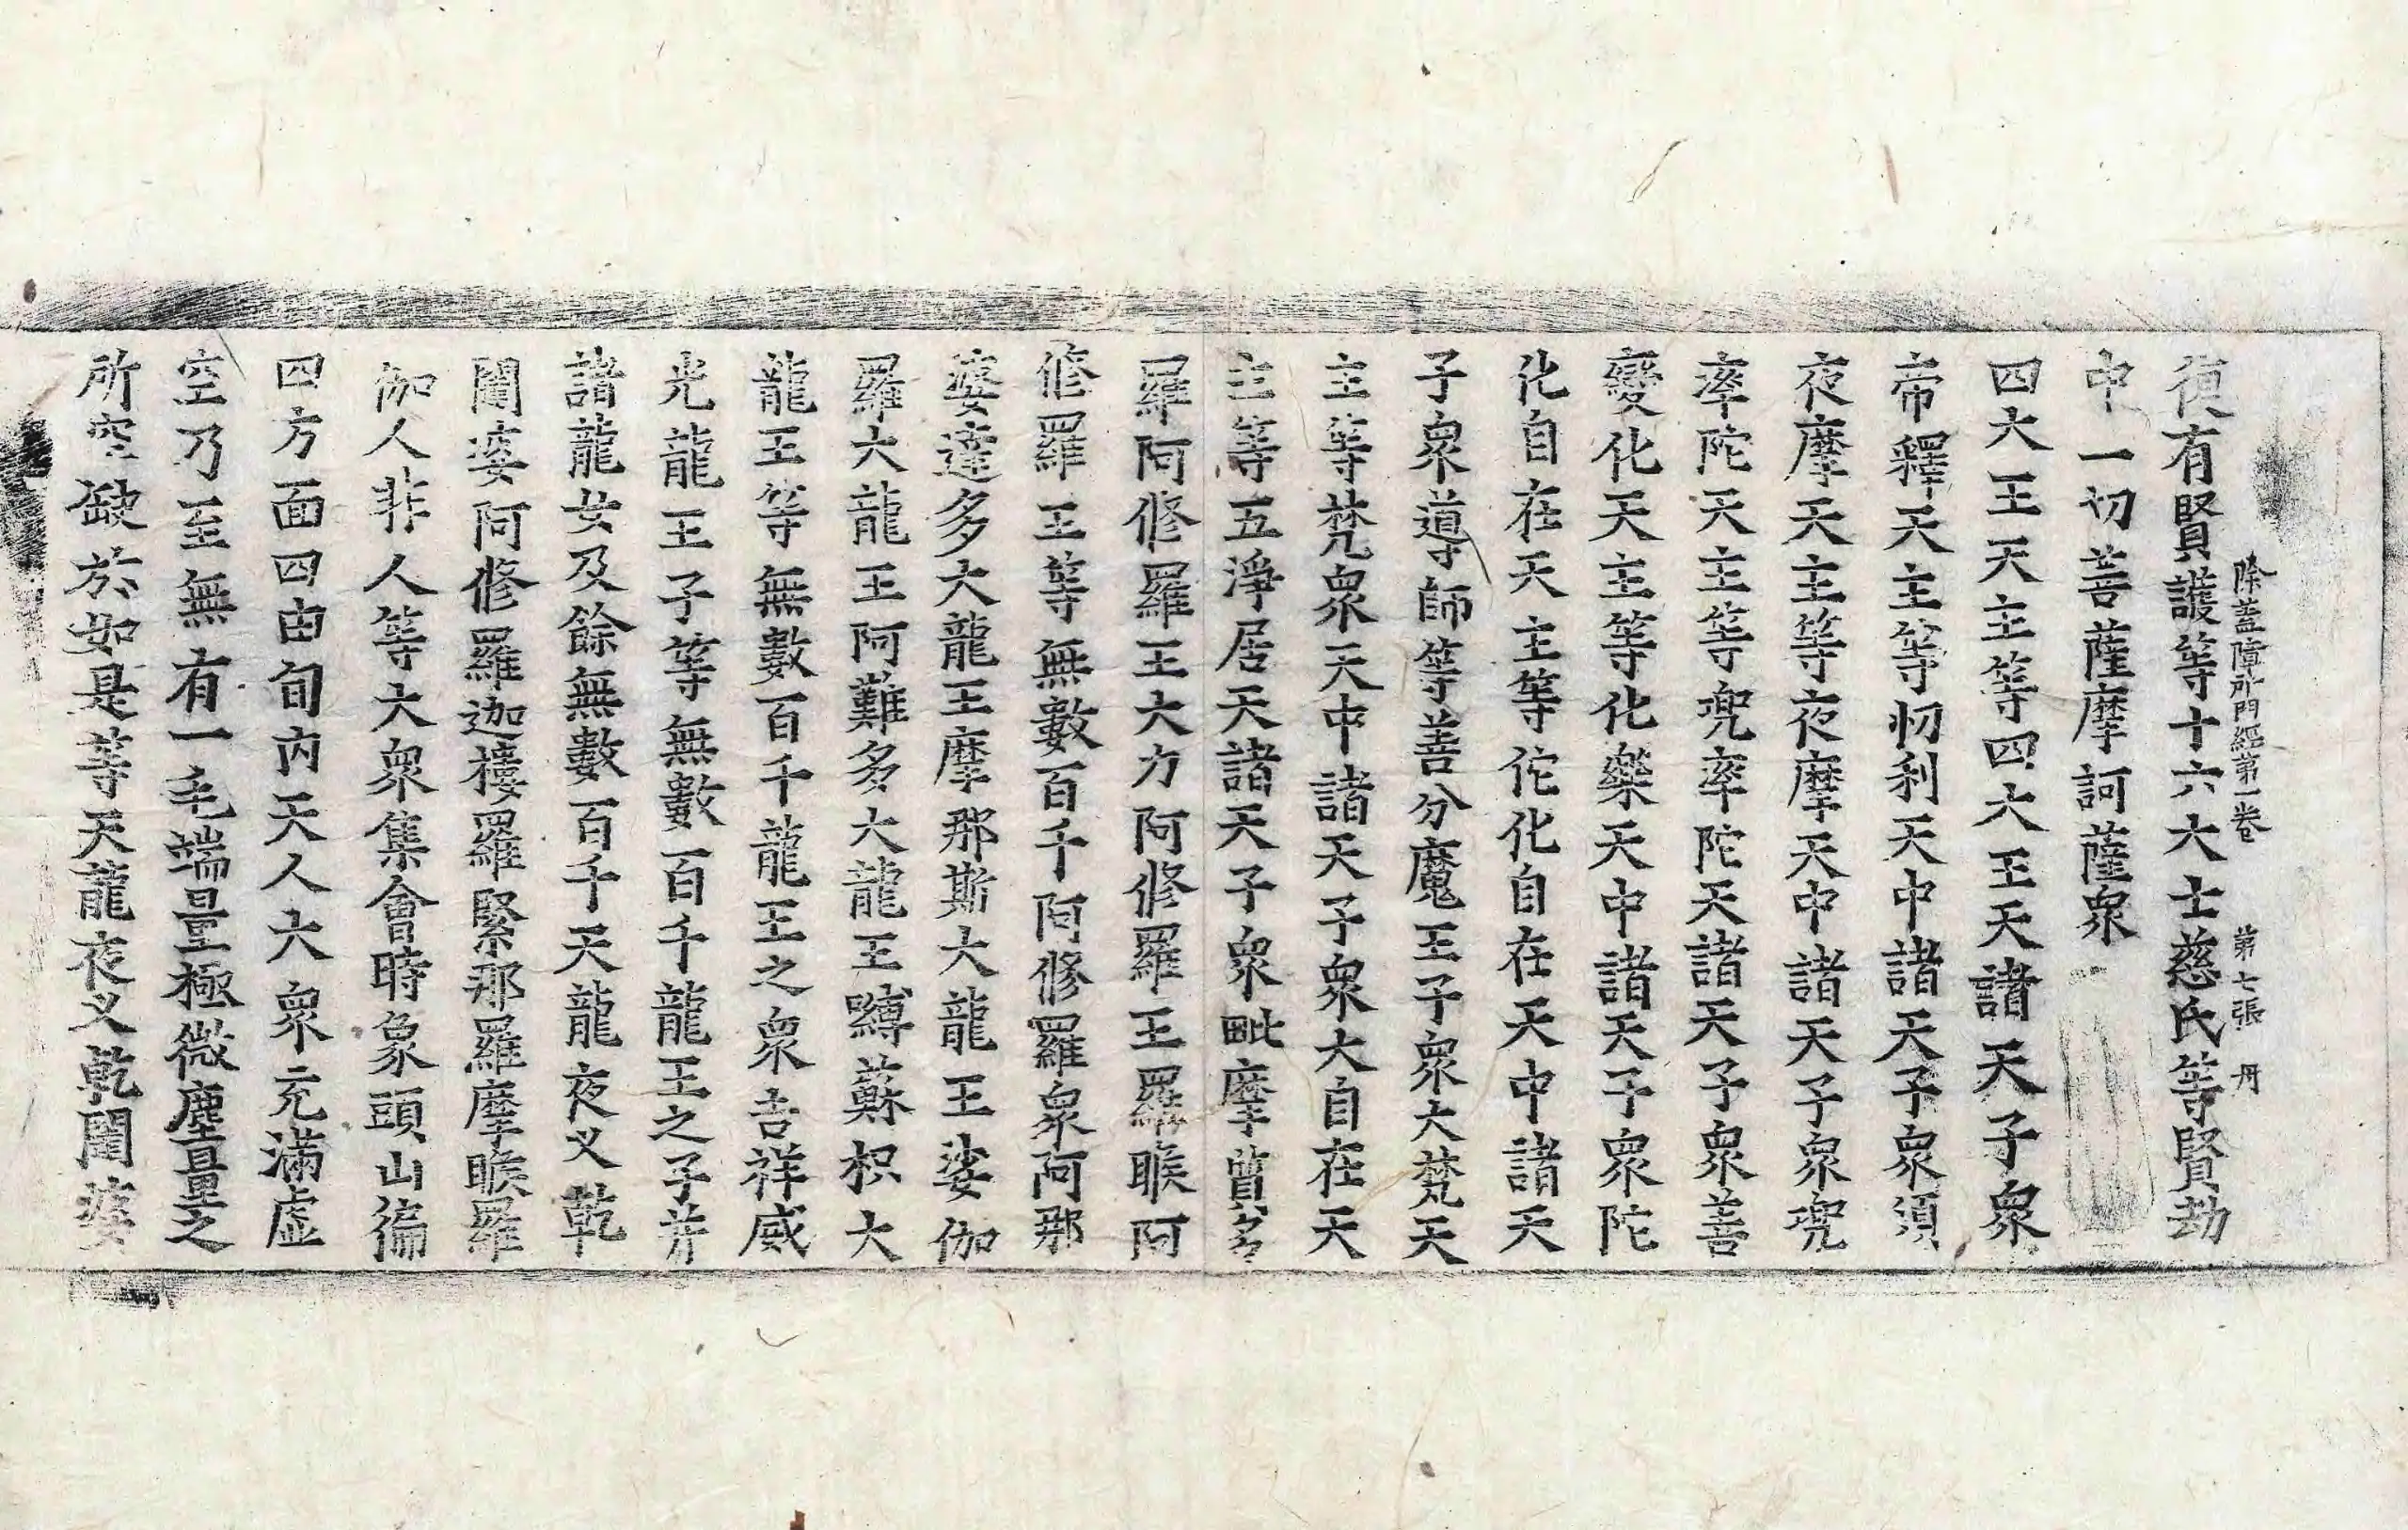 除盖障所問經第一卷 第七張 丹
復有賢護等十六大士慈氏等賢劫
中一切菩薩摩訶薩衆
四大王天主等四大王天諸天子衆
帝釋天主等忉利天中諸天子衆須
夜摩天主等夜摩天中諸天子衆兜
率陀天主等兜率陀天諸天子衆善
變化天主等化樂天中諸天子衆陀
化自在天主等佗化自在天中諸天
子衆導師等善分魔王子衆大梵天
主等梵衆天中諸天子衆大自在天
主等五淨居天諸天子衆毗摩質多
羅阿修羅王大力阿修羅王羅睺阿
修羅王等無數百千阿修羅衆阿那
婆達多大龍王摩那斯大龍王娑伽
羅大龍王阿難多大龍王嚩蘇枳大
龍王等無數百千龍王之衆吉祥威
光龍王子等無數百千龍王之子并
諸龍女及餘無數百千天龍夜叉乾
闥婆阿修羅迦樓羅緊那羅摩睺羅
伽人非人等大衆集會時象頭山徧
四方面四由旬內天人大衆充滿虛
空乃至無有一毛端量極微塵量之
所空缺於如是等天龍夜叉乾闥婆